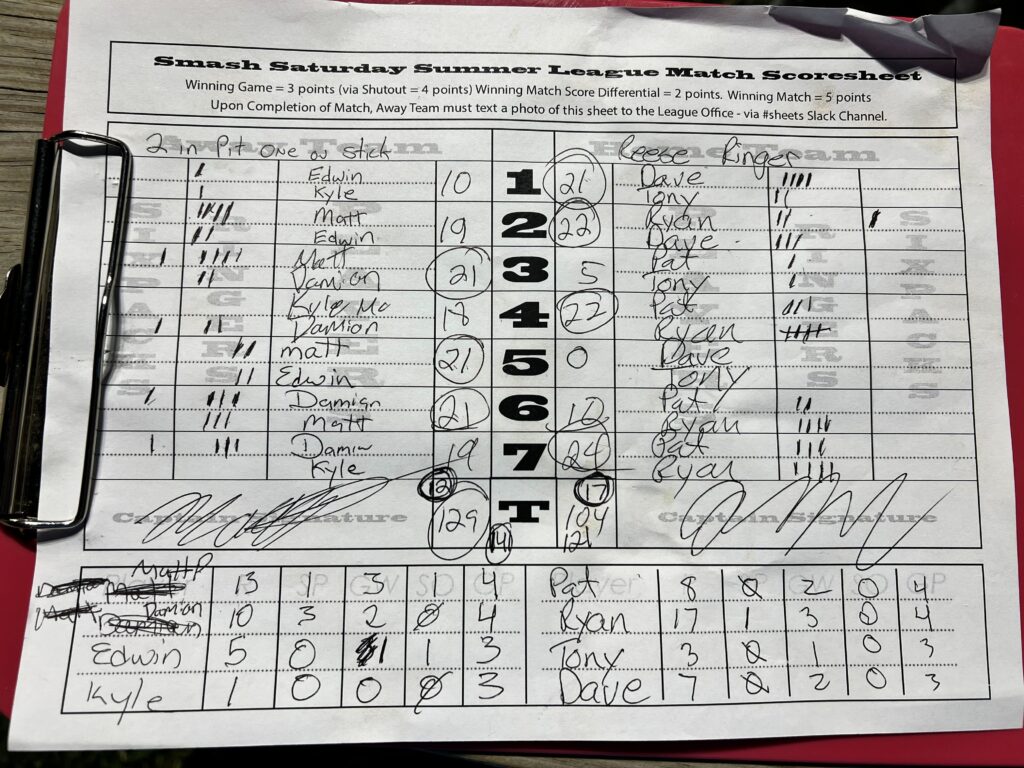 Smash Saturday Summer League Match Scoresheet
Winning Game = 3 points (via Shutout = 4 points) Winning Match Score Differential = 2 points. Winning Match = 5 points
Upon Completion of Match, Away Team must text a photo of this sheet to the League Office - via #sheets Slack Channel.
Away Team Home Team
2 in Pit one on stick Reese Ringer
Edwin 10 1 21 Dave
Kyle Tony
Matt 19 2 22 Ryan
Edwin Dave
Matt 21 3 5 Pat
Damion Tony
Kyle Mc 18 4 22 Pat
Damion Ryan
Matt 21 5 0 Dave
Edwin Tony
Damian 21 6 12 Pat
Matt Ryan
Damin 19 7 24 Pat
Kyle Ryan
SIXPACKS RINGERS RINGERS SIXPACKS
12 17
Captain Signature 129 T 104 Captain Signature
14 121
Matt P 13 1 3 1 4 Pat 8 0 2 0 4
SP GW SO GP Player SP GW SO GP
Damion 10 3 2 0 4 Ryan 17 1 3 0 4
Edwin 5 0 1 1 3 Tony 3 0 1 0 3
Kyle 1 0 0 0 3 Dave 7 0 2 0 3